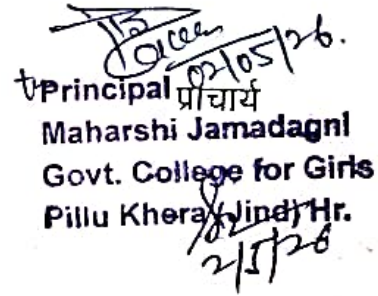 02/05/26.
Principal प्राचार्य
Maharshi Jamadagni
Govt. College for Girls
Pillu Khera (Jind) Hr.
2/5/26